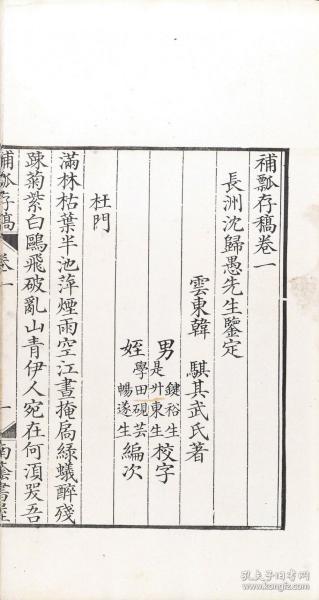 補瓢存稿卷一
長洲沈歸愚先生鑒定
雲東韓 騏其武氏著
男 鍵裕生 是升東生 校字
姪 學田硯芸 暢遂生 編次
杜門
滿林枯葉半池萍煙雨空江晝掩扃綠蟻醉殘
踈菊紫白鷗飛破亂山青伊人宛在何湏哭吾
補瓢存稿 卷一 一
孔夫子旧书网
www.kongfz.com